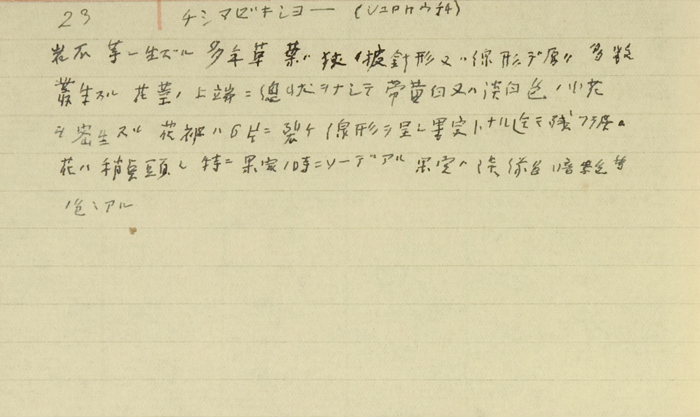 23 チシマゼキショー (ユリ科)
岩爪 等ニ生ズル 多年草 葉ハ狭ノ披針形又ハ線形デ厚ク 多数
叢生スル 花莖ノ上端ニ總状ヲナシテ 帯黄白又ハ淡白色ノ小花
ヲ密生スル 花被ハ6片ニ裂ケ 線形ヲ呈シ 果実トナル迄モ残
花ハ稍 頭シ 特ニ果実ノ時ニ デアル 果実ハ淡緑色 暗紫色等
ノ色ニアル